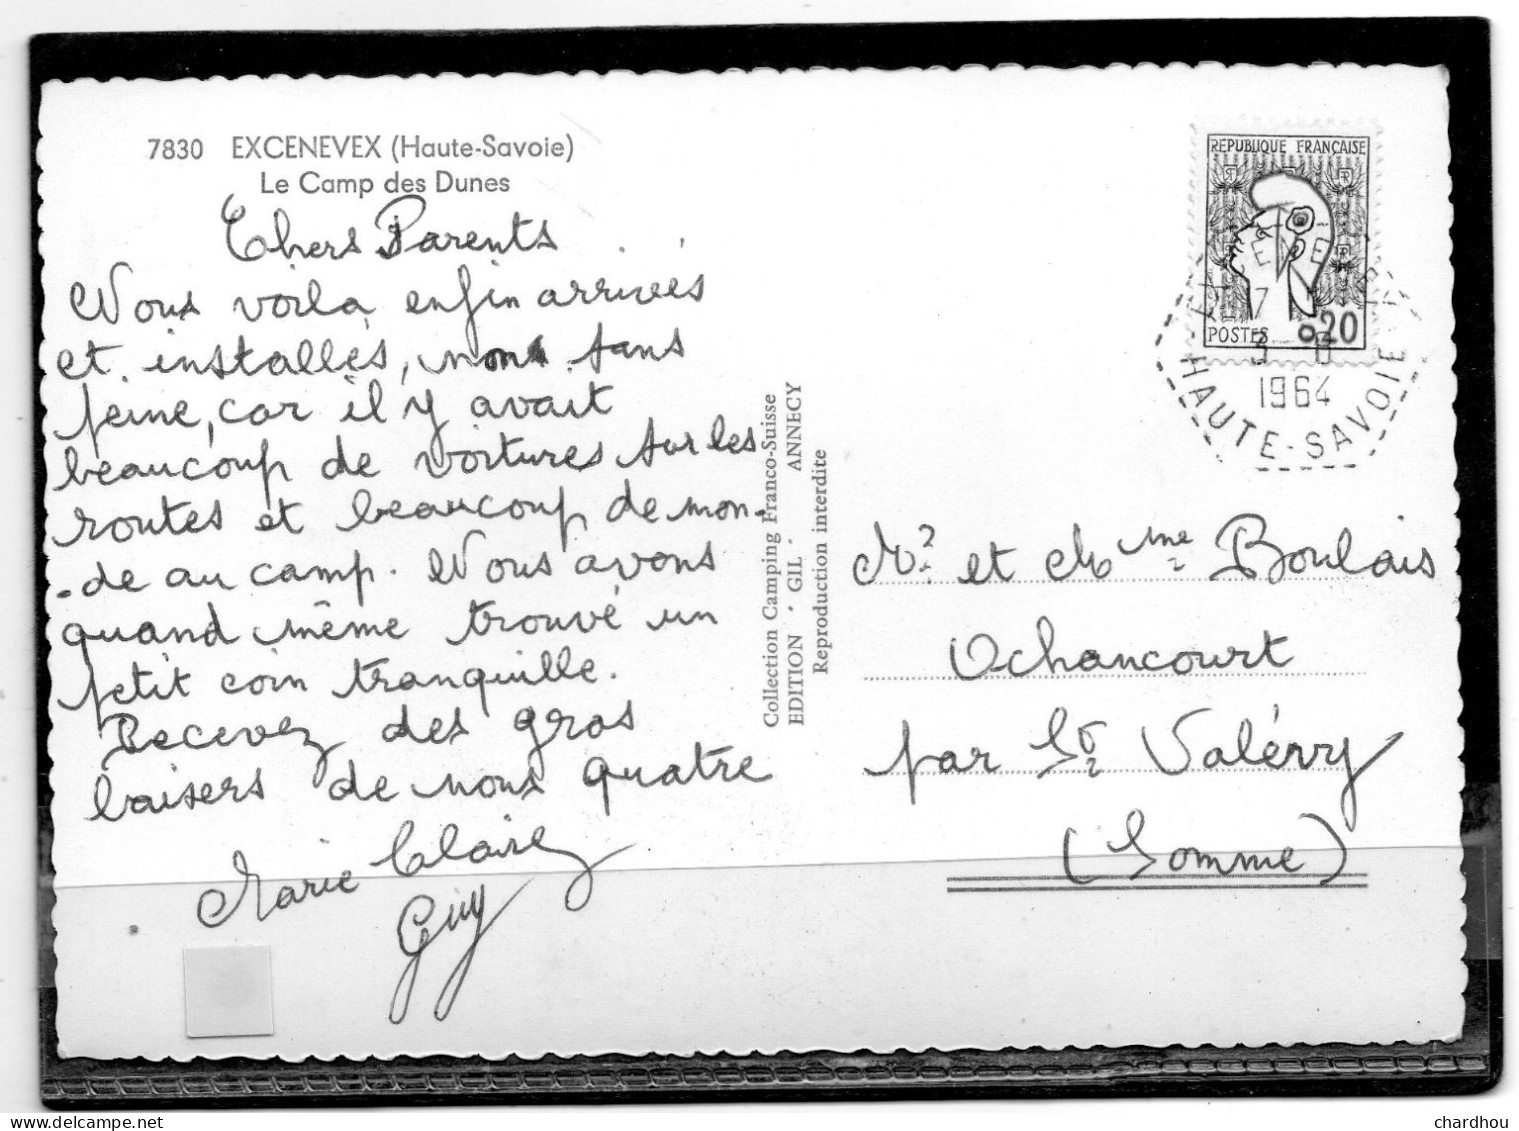 7830 EXCENEVEX (Haute-Savoie)
Le Camp des Dunes
Chers Parents
Nous voilà enfin arrivés
et installés, non sans
peine, car il y avait
beaucoup de voitures sur les
routes et beaucoup de mon-
-de au camp. Nous avons
quand même trouvé un
petit coin tranquille.
Recevez des gros
baisers de nous quatre
Marie Claire
Guy
Collection Camping Franco-Suisse
EDITION "GIL" ANNECY
Reproduction interdite
REPUBLIQUE FRANÇAISE
POSTES 0,20
1964
HAUTE-SAVOIE
Mr et Mme Boulais
Ochancourt
par St Valéry
(Somme)
delcampe.net
chardhou